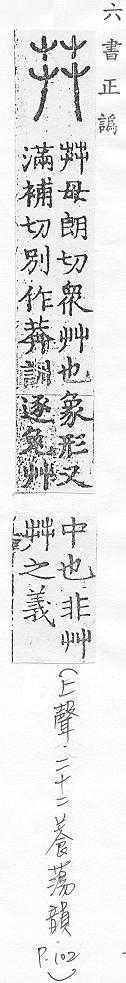 六書正譌
茻
茻母朗切衆艸也象形又
滿補切別作莽訓逐兔艸
中也非艸
艸之義
(上聲·二十二養蕩韻 P.102)